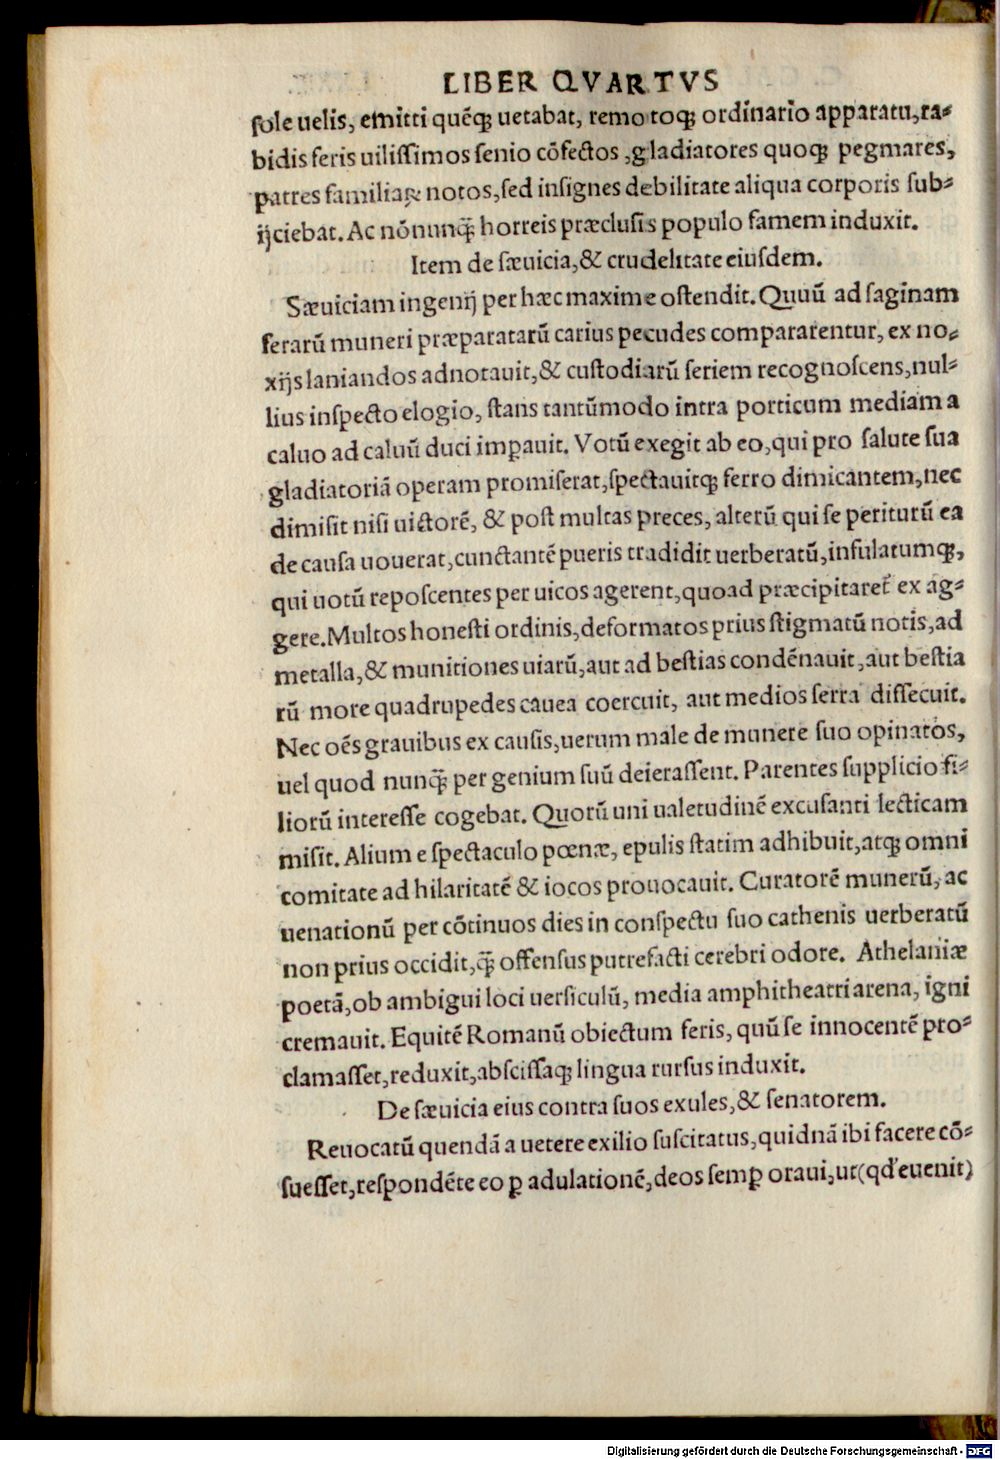 LIBER QVARTVS
ſole uelis, emitti quēqꝫ uetabat, remotoqꝫ ordinario apparatu, ra⸗
bidis feris uiliſſimos ſenio cōfectos, gladiatores quoqꝫ pegmares,
patres familiaꝝ notos, ſed inſignes debilitate aliqua corporis ſub⸗
ijciebat. Ac nōnunq̄ horreis præcluſis populo famem induxit.
Item de ſæuicia, & crudelitate eiuſdem.
Sæuiciam ingenij per hæc maxime oſtendit. Quuū ad ſaginam
ferarū muneri præparatarū carius pecudes compararentur, ex no⸗
xijs laniandos adnotauit, & cuſtodiarū ſeriem recognoſcens, nul⸗
lius inſpecto elogio, ſtans tantūmodo intra porticum mediam a
caluo ad caluū duci imꝑauit. Votū exegit ab eo, qui pro ſalute ſua
gladiatoriā operam promiſerat, ſpectauitqꝫ ferro dimicantem, nec
dimiſit niſi uictorē, & poſt multas preces, alterū qui ſe periturū ea
de cauſa uouerat, cunctantē pueris tradidit uerberatū, inſulatumqꝫ,
qui uotū repoſcentes per uicos agerent, quoad præcipitaret̃ ex ag⸗
gere. Multos honeſti ordinis, deformatos prius ſtigmatū notis, ad
metalla, & munitiones uiarū, aut ad beſtias condēnauit, aut beſtia
rū more quadrupedes cauea coercuit, aut medios ſerra diſſecuit.
Nec oēs grauibus ex cauſis, uerum male de munere ſuo opinatos,
uel quod nunq̄ per genium ſuū deieraſſent. Parentes ſupplicio fi⸗
liorū intereſſe cogebat. Quorū uni ualetudinē excuſanti lecticam
miſit. Alium e ſpectaculo pœnæ, epulis ſtatim adhibuit, atqꝫ omni
comitate ad hilaritatē & iocos prouocauit. Curatorē munerū, ac
uenationū per cōtinuos dies in conſpectu ſuo cathenis uerberatū
non prius occidit, q̄ offenſus putrefacti cerebri odore. Athelaniæ
poetā, ob ambigui loci uerſiculū, media amphitheatri arena, igni
cremauit. Equitē Romanū obiectum feris, quū ſe innocentē pro⸗
clamaſſet, reduxit, abſciſſaqꝫ lingua rurſus induxit.
De ſæuicia eius contra ſuos exules, & ſenatorem.
Reuocatū quendā a uetere exilio ſuſcitatus, quidnā ibi facere cō⸗
ſueſſet, reſpondēte eo ꝑ adulationē, deos ſemꝑ oraui, ut (qd' euenit)
Digitalisierung gefördert durch die Deutsche Forschungsgemeinschaft - DFG